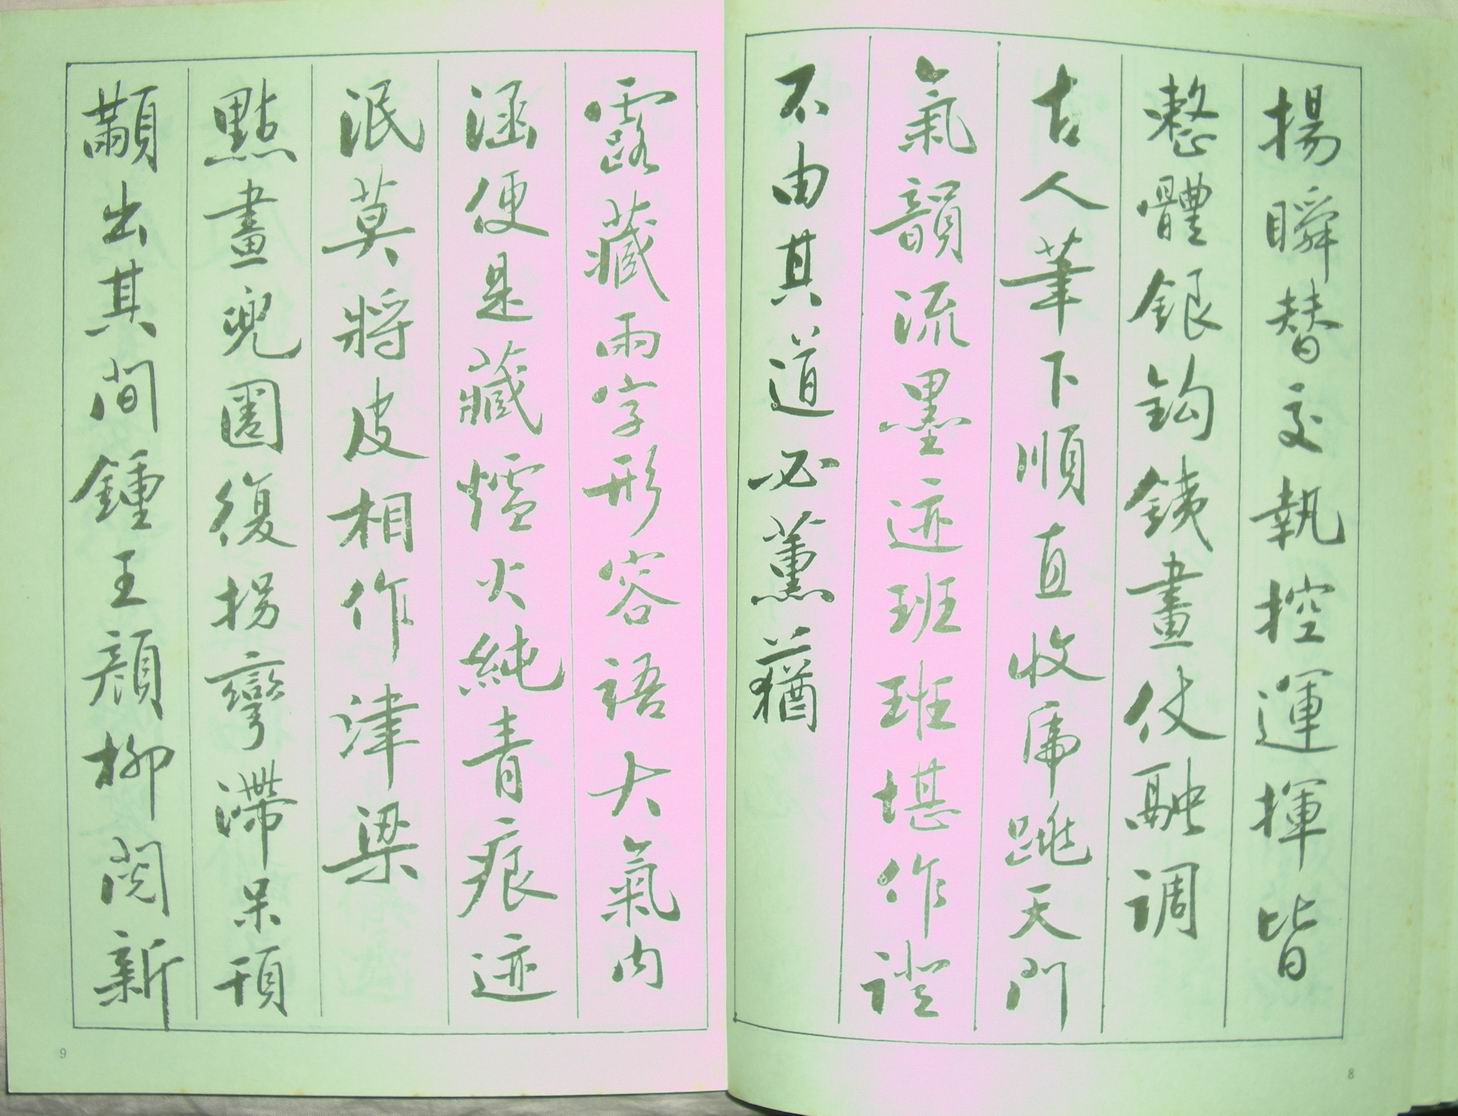 揚瞬替交執控運揮皆
整體銀鈎鉄畫仗融调
古人筆下順直收虎跳天門
氣韻流墨迹班班堪作證
不由其道必薰蕕
8
露藏兩字形容語大氣内
涵便是藏爐火純青痕迹
泯莫將皮相作津梁
點畫兜圈復拐彎滯呆頇
顢出其間鍾王顔柳閲新
9